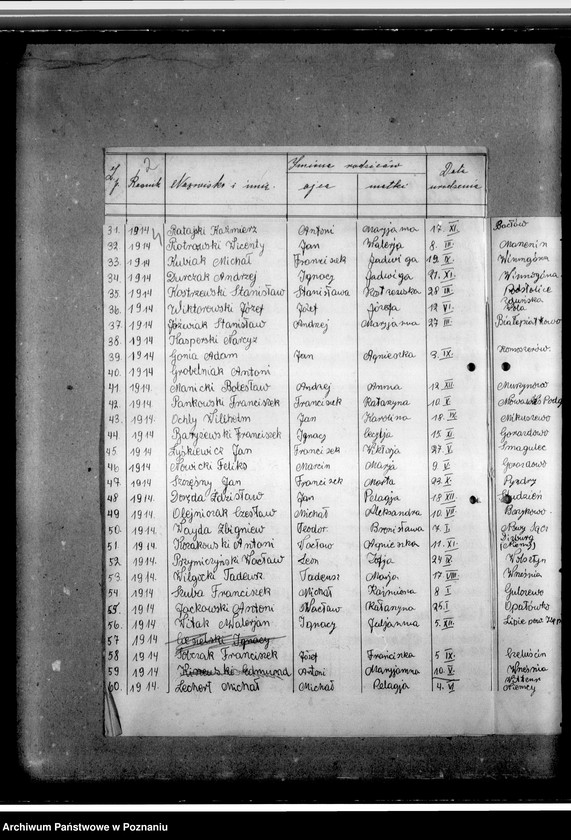 L.p. Rocznik Nazwisko i imię Imiona rodziców ojca matki Data urodzenia
31. 1914 Ratajski Kaźmierz Antoni Maryjanna 17. XI.
32 1914 Piotrowski Wicenty Jan Walerja 8. III. Mamenin
33. 1914 Kubiak Michał Franciszek Jadwiga 19. IX. Winnagóra
34 1914 Andrzej Ignacy Jadwiga 21. XI. Winnogóna
35. 1914 Kostrzewski Stanisław Stanisława 28 III.
36. 1914 Wiktorowski Józef Józef Józefa 12 VI.
37. 1914 Jóźwiak Stanisław Andrzej Maryjanna 27 III. Białepiątkowo
38. 1914 Kasperski Narcyz
39 1914 Gonia Adam Jan Agnieszka 3. IX. Komorzewo.
40. 1914 Grobelniak Antoni
41. 1914 Manicki Bolesław Andrzej Anna 12 XII. Murzynowo
42. 1914 Pankowski Franciszek Franciszek Katarzyna 10 X
43. 1914. Ochly Wilhelm Jan Karolina 18. IX Mikuszewo
44. 1914 Franciszek Ignacy Cecylja 15. XI. Gozdowo
45 1914. Łyskiewicz Jan Franciszek Wiktorja 27. X. Smagulec
46. 1914. Nowicki Feliks Marcin Marja 9 V. Gozdowo
47. 1914 Szczęsny Jan Franciszek Marta 23. X. Pyzdry
48 1914 Zdzisław Jan Pelagja 18 XII.
49 1914 Olejniczak Czesław Michał Aleksandra 10. VII
50. 1914 Wayda Zbigniew Teodor. Bronisława 7. I.
51 1914 Antoni Wacław Agnieszka 11. XI.
52. 1914. Przymiczyński Wacław Leon Zofja 24 IX. Wolsztyn
53. 1914 Tadeusz Tadeusz Marja 17 VIII. Września
54 1914 Skuba Franciszek Michał Kazimiera 8 I Gutowo
55. 1914 Jackowski Antoni Wacław Katarzyna 25. I Opatówko
56. 1914 Witak Walerjan Ignacy 5. XII. Lipie
57 1914 Ignacy
58 1914 Franciszek Józef Franciszka 5 IX. Czeluścin
59 1914 Antoni Maryjanna 10 X. Września
60. 1914. Lechort Michał Michał Pelagja 4. VI Niemcy
Archiwum Państwowe w Poznaniu